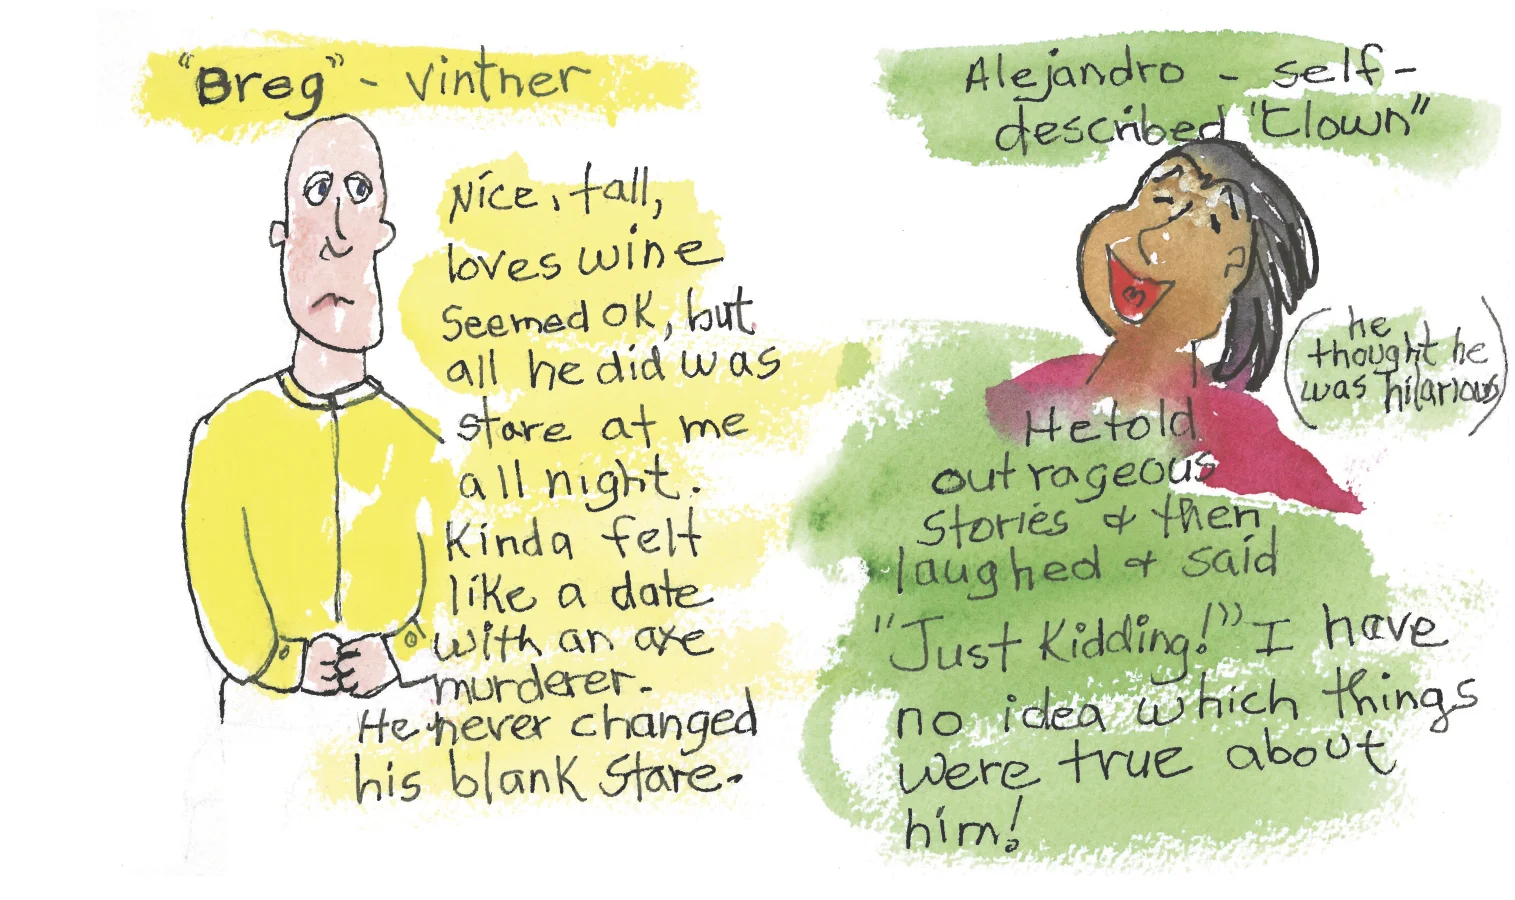 "Greg" - Vintner
Nice, tall,
loves wine
Seemed OK, but
all he did was
stare at me
all night.
Kinda felt
like a date
with an axe
murderer.
He never changed
his blank Stare.
Alejandro - self-
described "Clown"
(he
thought he
was hilarious)
He told
outrageous
Stories & then
laughed & said
"Just Kidding!" I have
no idea which things
were true about
him!